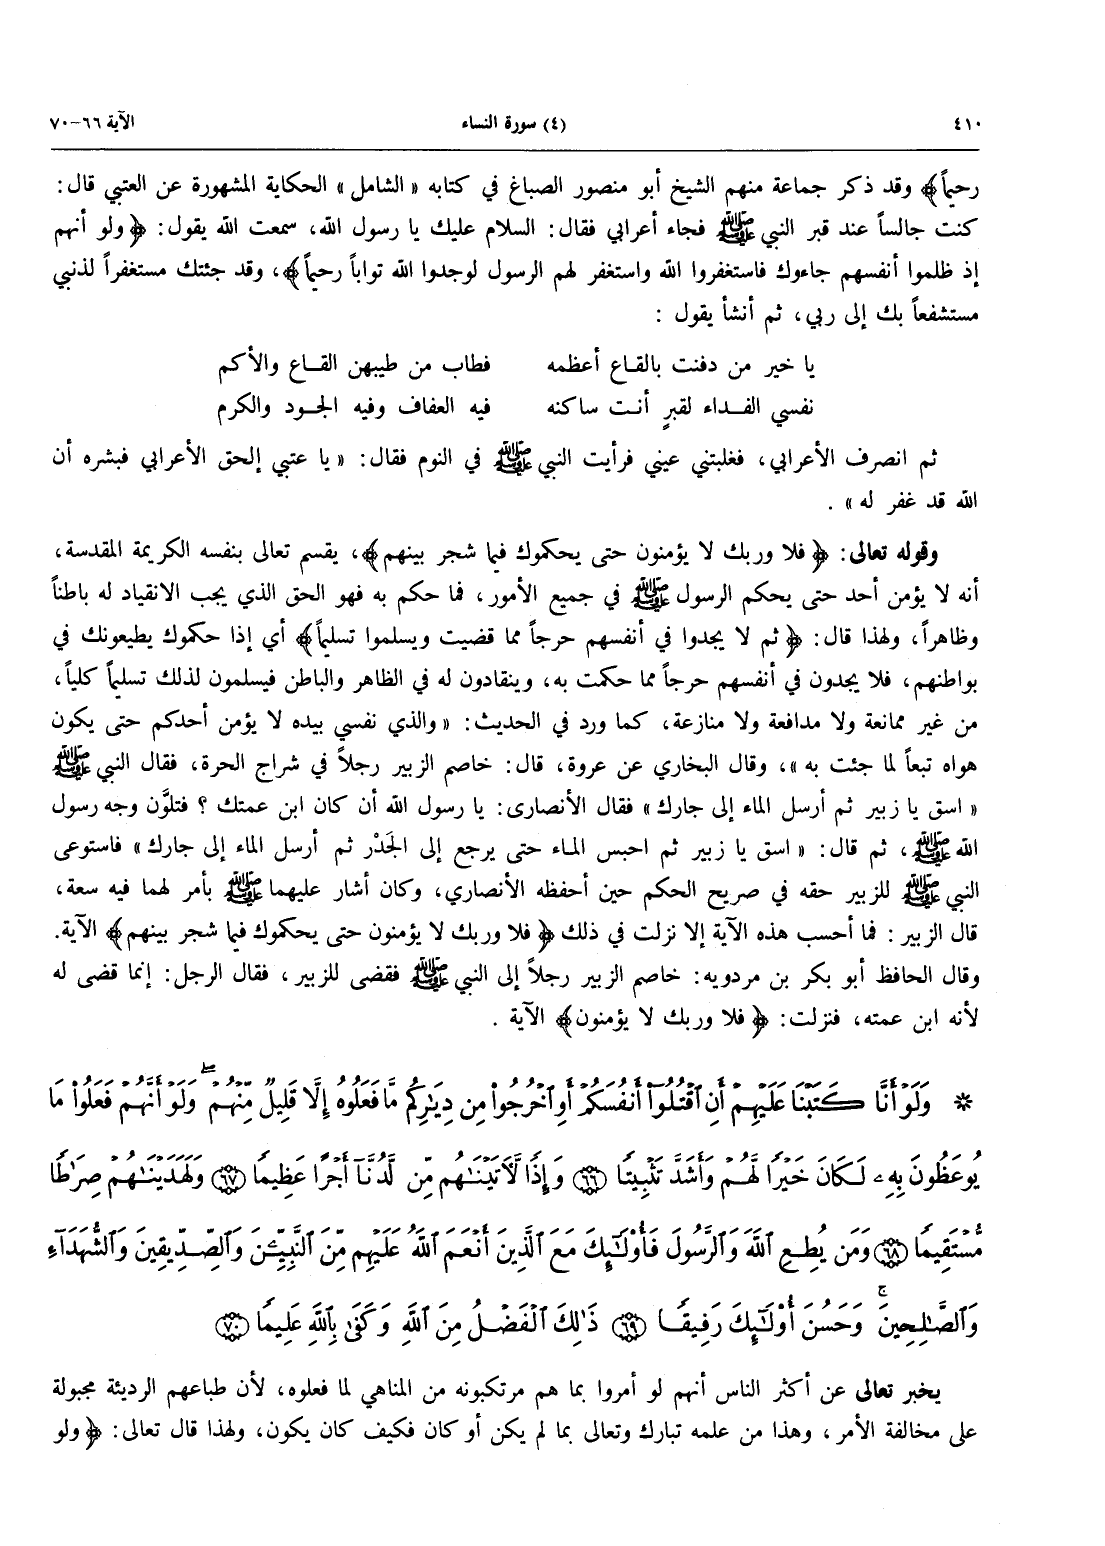 ٤١٠ (٤) سورة النساء الآية ٦٦-٧٠
رحيماً﴾ وقد ذكر جماعة منهم الشيخ أبو منصور الصباغ في كتابه « الشامل » الحكاية المشهورة عن العتبي قال:
كنت جالساً عند قبر النبي ﷺ فجاء أعرابي فقال: السلام عليك يا رسول الله، سمعت الله يقول: ﴿ ولو أنهم
إذ ظلموا أنفسهم جاءوك فاستغفروا الله واستغفر لهم الرسول لوجدوا الله تواباً رحيماً﴾، وقد جئتك مستغفراً لذنبي
مستشفعاً بك إلى ربي، ثم أنشأ يقول :
يا خير من دفنت بالقاع أعظمه فطاب من طيبهن القـاع والأكم
نفسي الفـداء لقبرٍ أنت ساكنه فيه العفاف وفيه الجـود والكرم
ثم انصرف الأعرابي، فغلبتني عيني فرأيت النبي ﷺ في النوم فقال: « يا عتبي إلحق الأعرابي فبشره أن
الله قد غفر له » .
وقوله تعالى: ﴿ فلا وربك لا يؤمنون حتى يحكموك فيما شجر بينهم﴾، يقسم تعالى بنفسه الكريمة المقدسة،
أنه لا يؤمن أحد حتى يحكم الرسول ﷺ في جميع الأمور، فما حكم به فهو الحق الذي يجب الانقياد له باطناً
وظاهراً، ولهذا قال: ﴿ ثم لا يجدوا في أنفسهم حرجاً مما قضيت ويسلموا تسليماً﴾ أي إذا حكموك يطيعونك في
بواطنهم، فلا يجدون في أنفسهم حرجاً مما حكمت به، وينقادون له في الظاهر والباطن فيسلمون لذلك تسليماً كلياً،
من غير ممانعة ولا مدافعة ولا منازعة، كما ورد في الحديث: « والذي نفسي بيده لا يؤمن أحدكم حتى يكون
هواه تبعاً لما جئت به »، وقال البخاري عن عروة، قال: خاصم الزبير رجلاً في شراج الحرة، فقال النبي ﷺ
« اسق يا زبير ثم أرسل الماء إلى جارك » فقال الأنصارى: يا رسول الله أن كان ابن عمتك ؟ فتلوَّن وجه رسول
الله ﷺ، ثم قال: « اسق يا زبير ثم احبس المـاء حتى يرجع إلى الجَدْر ثم أرسل الماء إلى جارك » فاستوعى
النبي ﷺ للزبير حقه في صريح الحكم حين أحفظه الأنصاري، وكان أشار عليهما ﷺ بأمر لهما فيه سعة،
قال الزبير : فما أحسب هذه الآية إلا نزلت في ذلك ﴿ فلا وربك لا يؤمنون حتى يحكموك فيما شجر بينهم﴾ الآية.
وقال الحافظ أبو بكر بن مردويه: خاصم الزبير رجلاً إلى النبي ﷺ فقضى للزبير، فقال الرجل: إنما قضى له
لأنه ابن عمته، فنزلت: ﴿ فلا وربك لا يؤمنون﴾ الآية .
* وَلَوْ أَنَّا كَتَبْنَا عَلَيْهِمْ أَنِ ٱقْتُلُوٓا۟ أَنفُسَكُمْ أَوِ ٱخْرُجُوا۟ مِن دِيَـٰرِكُم مَّا فَعَلُوهُ إِلَّا قَلِيلٌ مِّنْهُمْ ۖ وَلَوْ أَنَّهُمْ فَعَلُوا۟ مَا
يُوعَظُونَ بِهِۦ لَكَانَ خَيْرًا لَّهُمْ وَأَشَدَّ تَثْبِيتًا ﴿٦٦﴾ وَإِذًا لَّـَٔاتَيْنَـٰهُم مِّن لَّدُنَّآ أَجْرًا عَظِيمًا ﴿٦٧﴾ وَلَهَدَيْنَـٰهُمْ صِرَٰطًا
مُّسْتَقِيمًا ﴿٦٨﴾ وَمَن يُطِعِ ٱللَّهَ وَٱلرَّسُولَ فَأُو۟لَـٰٓئِكَ مَعَ ٱلَّذِينَ أَنْعَمَ ٱللَّهُ عَلَيْهِم مِّنَ ٱلنَّبِيِّـۧنَ وَٱلصِّدِّيقِينَ وَٱلشُّهَدَآءِ
وَٱلصَّـٰلِحِينَ ۚ وَحَسُنَ أُو۟لَـٰٓئِكَ رَفِيقًا ﴿٦٩﴾ ذَٰلِكَ ٱلْفَضْلُ مِنَ ٱللَّهِ وَكَفَىٰ بِٱللَّهِ عَلِيمًا ﴿٧٠﴾
يخبر تعالى عن أكثر الناس أنهم لو أمروا بما هم مرتكبونه من المناهي لما فعلوه، لأن طباعهم الرديئة مجبولة
على مخالفة الأمر، وهذا من علمه تبارك وتعالى بما لم يكن أو كان فكيف كان يكون، ولهذا قال تعالى: ﴿ ولو